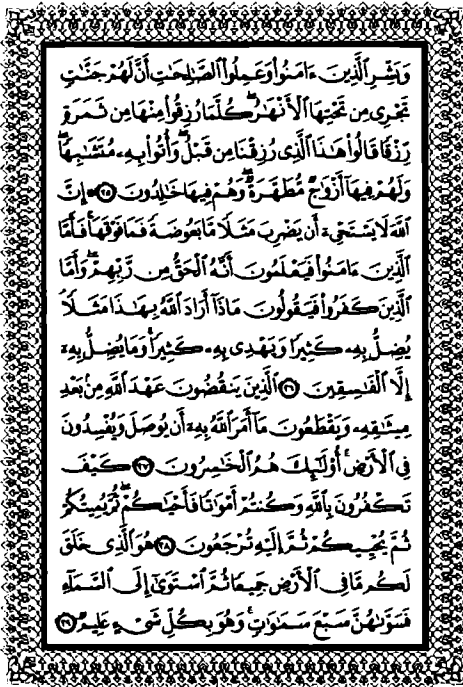 وَبَشِّرِ الَّذِينَ ءَامَنُوا وَعَمِلُوا الصَّالِحَاتِ أَنَّ لَهُمْ جَنَّاتٍ
تَجْرِى مِن تَحْتِهَا الْأَنْهَارُ كُلَّمَا رُزِقُوا مِنْهَا مِن ثَمَرَةٍ
رِّزْقًا قَالُوا هَاذَا الَّذِى رُزِقْنَا مِن قَبْلُ وَأُتُوا بِهِ مُتَشَابِهًا
وَلَهُمْ فِيهَا أَزْوَاجٌ مُّطَهَّرَةٌ وَهُمْ فِيهَا خَالِدُونَ ٢٥ إِنَّ
اللَّهَ لَا يَسْتَحْىِ أَن يَضْرِبَ مَثَلًا مَّا بَعُوضَةً فَمَا فَوْقَهَا فَأَمَّا
الَّذِينَ ءَامَنُوا فَيَعْلَمُونَ أَنَّهُ الْحَقُّ مِن رَّبِّهِمْ وَأَمَّا
الَّذِينَ كَفَرُوا فَيَقُولُونَ مَاذَا أَرَادَ اللَّهُ بِهَاذَا مَثَلًا
يُضِلُّ بِهِ كَثِيرًا وَيَهْدِى بِهِ كَثِيرًا وَمَا يُضِلُّ بِهِ
إِلَّا الْفَاسِقِينَ ٢٦ الَّذِينَ يَنقُضُونَ عَهْدَ اللَّهِ مِنْ بَعْدِ
مِيثَاقِهِ وَيَقْطَعُونَ مَا أَمَرَ اللَّهُ بِهِ أَن يُوصَلَ وَيُفْسِدُونَ
فِى الْأَرْضِ أُولَائِكَ هُمُ الْخَاسِرُونَ ٢٧ كَيْفَ
تَكْفُرُونَ بِاللَّهِ وَكُنتُمْ أَمْوَاتًا فَأَحْيَاكُمْ ثُمَّ يُمِيتُكُمْ
ثُمَّ يُحْيِيكُمْ ثُمَّ إِلَيْهِ تُرْجَعُونَ ٢٨ هُوَ الَّذِى خَلَقَ
لَكُم مَّا فِى الْأَرْضِ جَمِيعًا ثُمَّ اسْتَوَى إِلَى السَّمَاءِ
فَسَوَّاهُنَّ سَبْعَ سَمَاوَاتٍ وَهُوَ بِكُلِّ شَىْءٍ عَلِيمٌ ٢٩